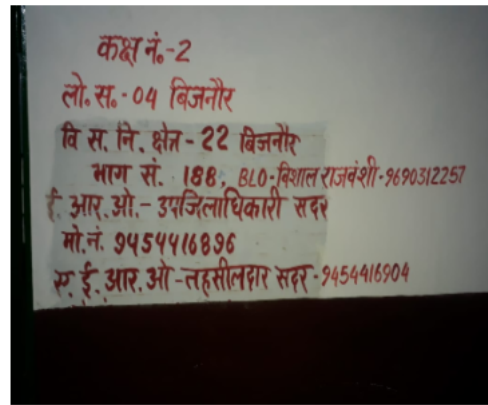 कक्ष नं.-2
लो. स. - 04 बिजनौर
वि स. नि. क्षेत्र - 22 बिजनौर
भाग सं. 188, BLO-विशाल राजवंशी-9690312257
ई. आर. ओ. - उपजिलाधिकारी सदर
मो. नं. 9454416896
ए. ई. आर. ओ - तहसीलदार सदर - 9454416904